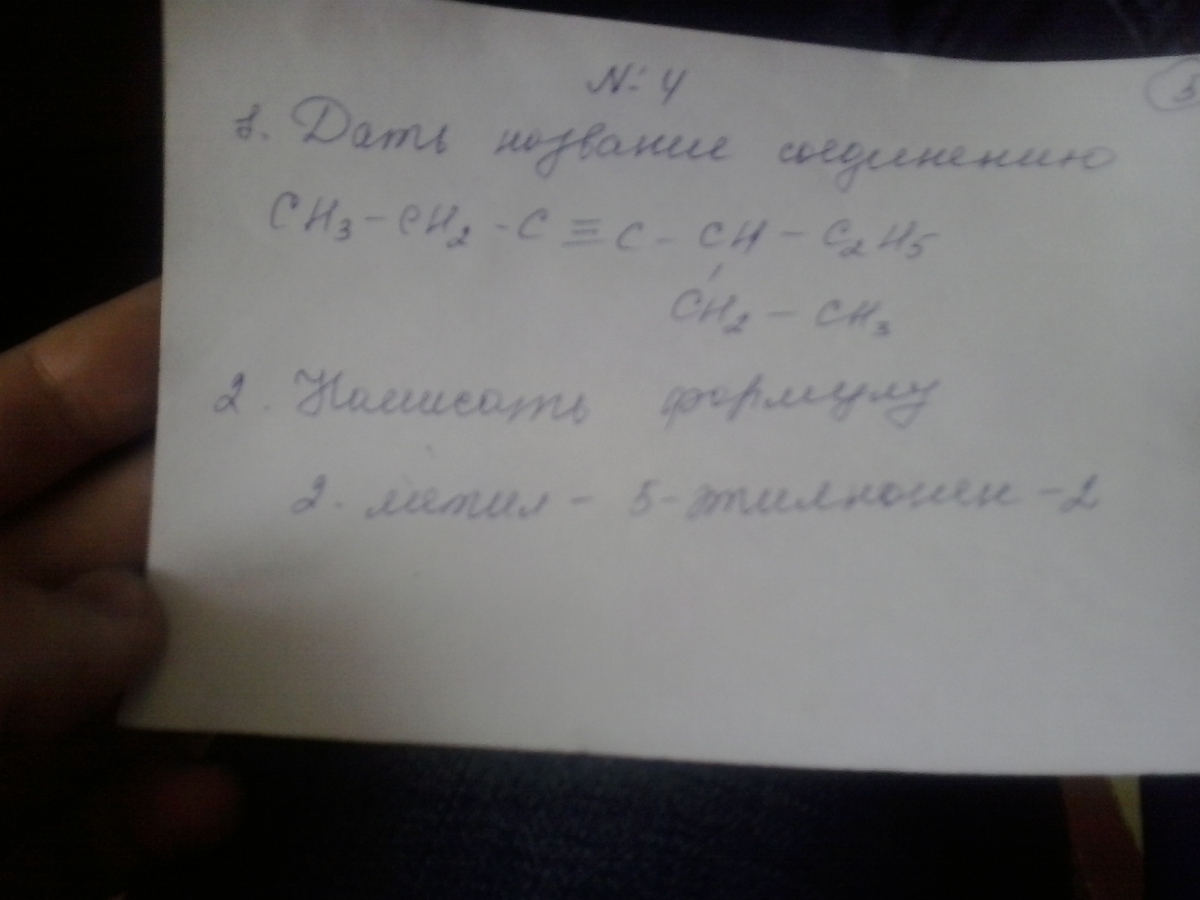 № 4
3
1. Дать название соединению
CH₃ - CH₂ - C ≡ C - CH - C₂H₅
CH₂ - CH₃
2. Написать формулу
2. метил - 5 - этилнонен - 2